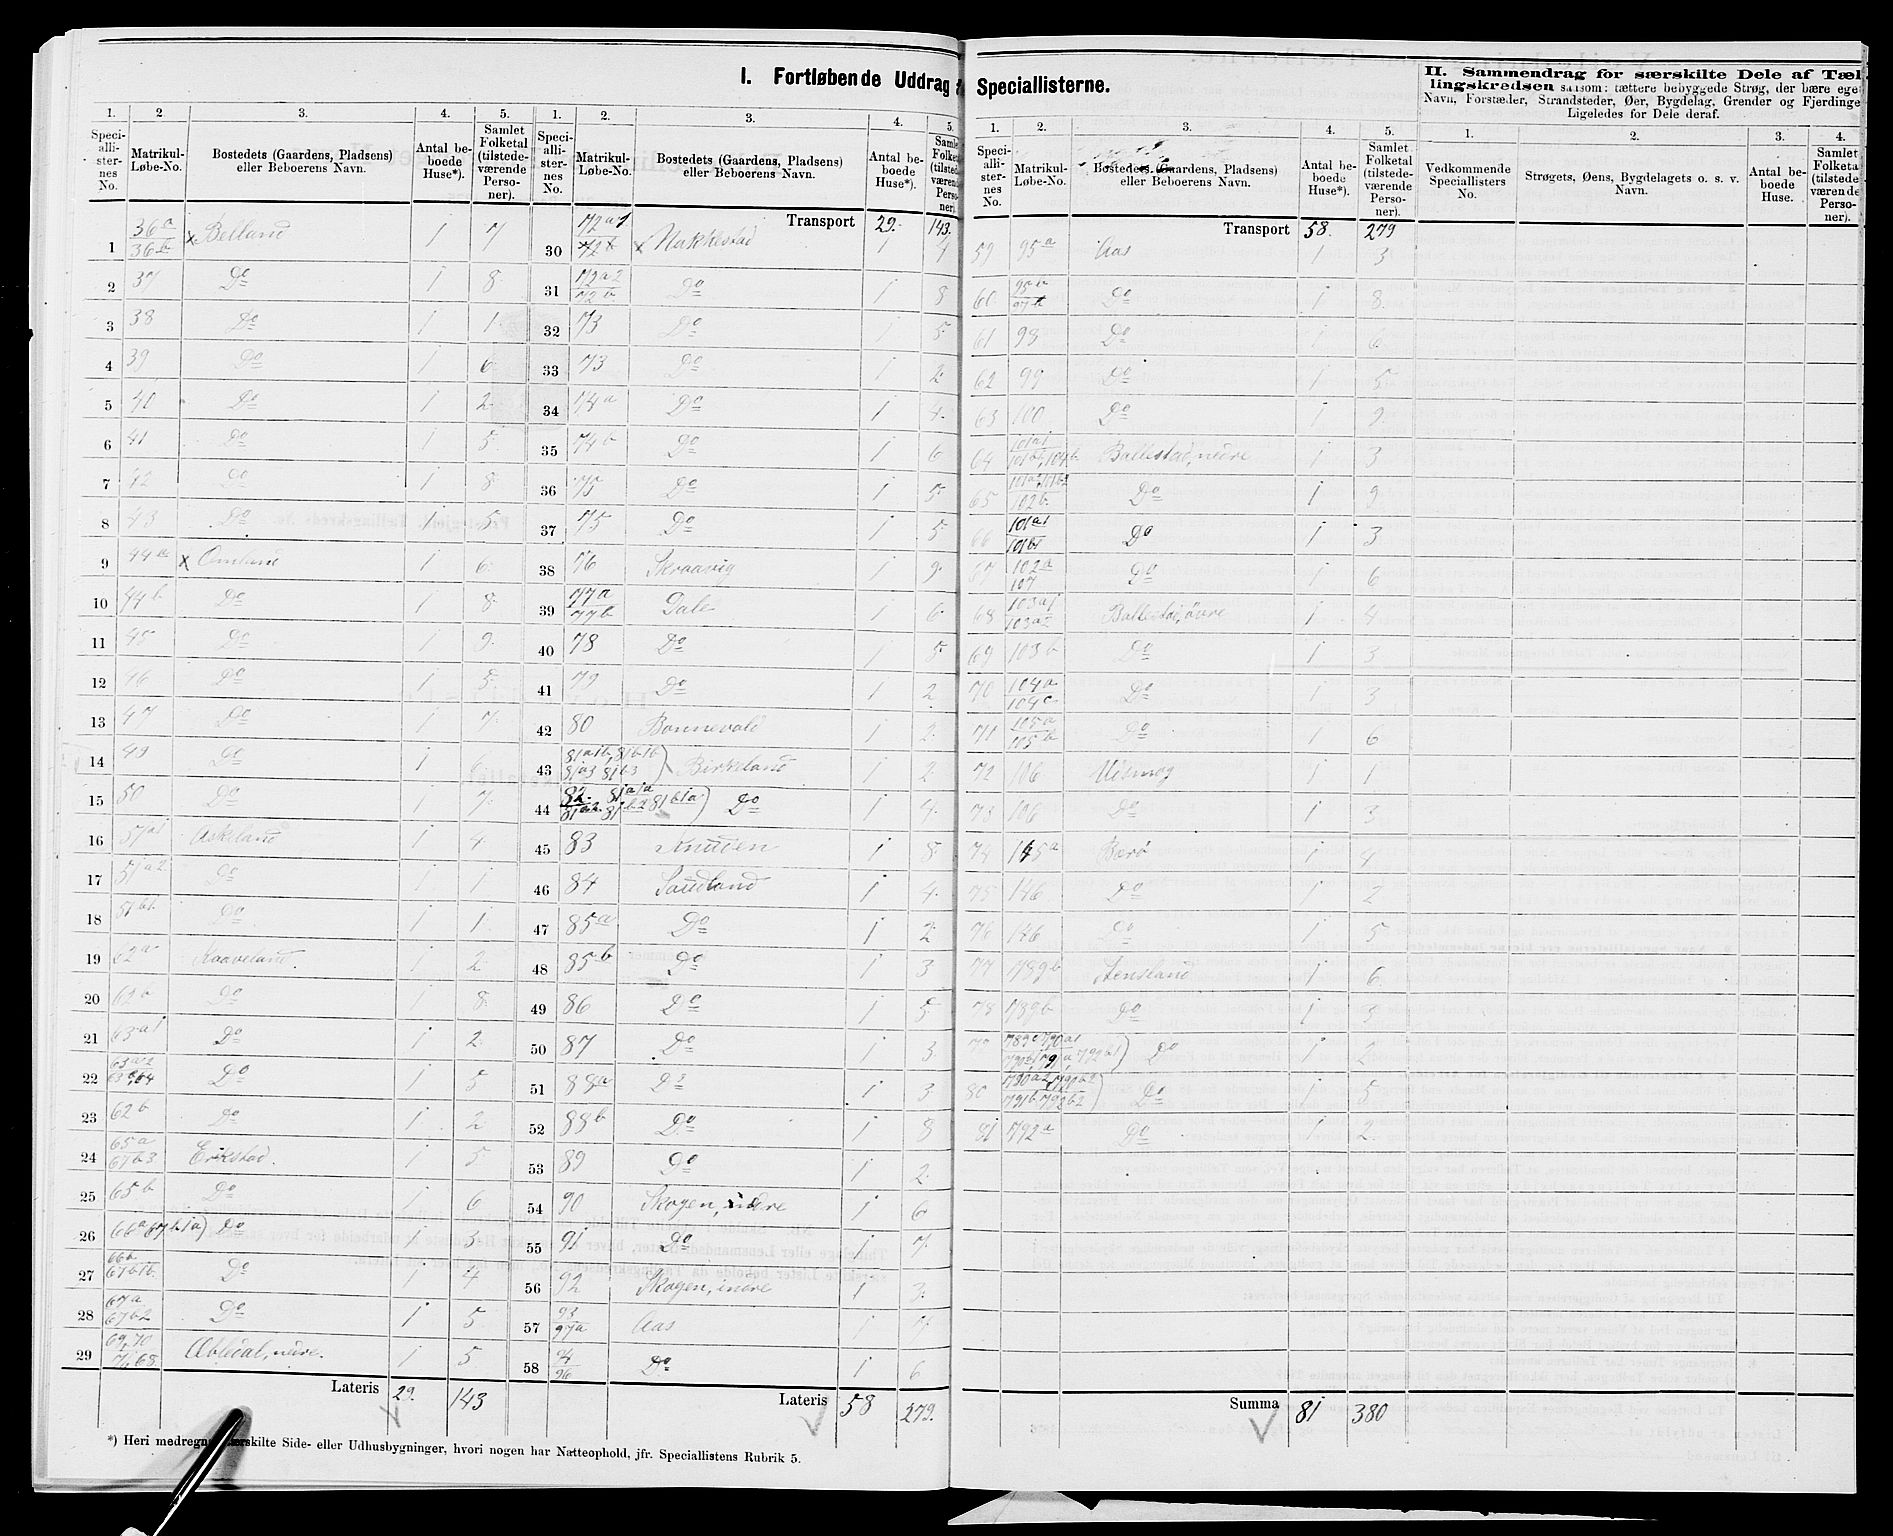 I. Fortløbende Uddrag a
Speciallisterne.
II. Sammendrag for særskilte Dele af Tæl-
lingskredsen saasom: tættere bebyggede Strøg, der bære eget
Navn, Forstæder, Strandsteder, Øer, Bygdelag, Grender og Fjerdinger
Ligeledes for Dele deraf.
1. 2 3. 4. 5. 1. 2. 3. 4. 5.
Speci-alli-ster-nes No. Matrikul-Løbe-No. Bostedets (Gaardens, Pladsens) eller Beboerens Navn. Antal be-boede Huse*). Samlet Folketal (tilstede-værende Perso-ner).
1 36a 36b x Belland 1 7
2 37 Do 1 8
3 38 Do 1 1
4 39 Do 1 6
5 40 Do 1 2
6 41 Do 1 5
7 42 Do 1 8
8 43 Do 1 5
9 44a x Omland 1 6
10 44b Do 1 8
11 45 Do 1 9
12 46 Do 1 5
13 47 Do 1 7
14 49 Do 1 6
15 50 Do 1 7
16 51a1 Askeland 1 4
17 51a2 Do 1 1
18 51b1 Do 1 1
19 62a Kaaveland. 1 2
20 62a Do 1 8
21 63a1 Do 1 2
22 63a2 64 Do 1 5
23 62b Do 1 2
24 65a 67b3 Erikstad. 1 5
25 65b Do 1 6
26 66a 67b1a) Do 1 3
27 66a 67b1b Do 1 4
28 67a 67b2 Do 1 5
29 69,70 71,68 Abledal, nedre. 1 5
Lateris 29. 143
Speci-alli-ster-nes No. Matrikul-Løbe-No. Bostedets (Gaardens, Pladsens) eller Beboerens Navn. Antal be-boede Huse*). Samlet Folketal (tilstede-værende Perso-ner).
Transport 29. 143.
30 72a1 72b x Nakkestad 1
31 72a2 72b Do 1 8
32 73 Do 1 5
33 73 Do 1 2
34 74a Do 1 4
35 74b Do 1 6
36 75 Do 1 5
37 75 Do 1 5
38 76 Skraavig 1 9
39 77a 77b Dale 1 6
40 78 Do 1 5
41 79 Do 1 2
42 80 Bonnevald 1 2
43 81a1b, 81b1b 81a3 81b3) Birkeland 1 2
44 82. 81a1a 81a2 81b2 81b1a) Do 1 4
45 83 Knuden 1 8
46 84 Sandland 1 4
47 85a Do 1 2
48 85b Do 1 3
49 86 Do 1 5
50 87 Do 1 3
51 88a Do 1 3
52 88b Do 1 8
53 89 Do 1 2
54 90 Skogen, indre 1 6
55 91 Do 1 7
56 92 Skogen, indre 1 3
57 93 97a Aas 1
58 94 96 Do 1 6
Lateris 58 279.
1. 2. 3. 4. 5.
Speci-alli-ster-nes No. Matrikul-Løbe-No. Bostedets (Gaardens, Pladsens) eller Beboerens Navn. Antal be-boede Huse*). Samlet Folketal (tilstede-værende Perso-ner).
Transport 58. 279
59 95a Aas 1 3
60 95b 97b Do 1 8
61 98 Do 1 6
62 99 Do 1 5
63 100 Do 1 9
64 101a1 101b1, 104b Ballestad, nedre 1 3
65 101a2, 101b2 102b Do 1 9
66 101a1 101b1 Do 1 3
67 102a 107 Do 1 6
68 103a1 103a2 Ballestad, øvre 1 4
69 103b Do 1 3
70 104a 104c Do 1 3
71 105a 105b Do 1 6
72 106 Udsmog 1 1
73 106 Do 1 3
74 145a Borø 1 4
75 146 Do 1 2
76 146 Do 1 5
77 789b Stensland 1 6
78 789b Do 1 3
79 789c 790a1 Do 1 2
80 790a2, 791b 792b2) Do 1 5
81 792a Do 1 2
Summa 81 380
1. 2. 3. 4.
Vedkommende Speciallisters No. Strøgets, Øens, Bygdelagets o. s. v. Navn. Antal be-boede Huse. Samlet Folketal (tilstede-værende Perso-ner).
*) Heri medregnes særskilte Side- eller Udhusbygninger, hvori nogen har Natteophold, jfr. Speciallistens Rubrik 5.